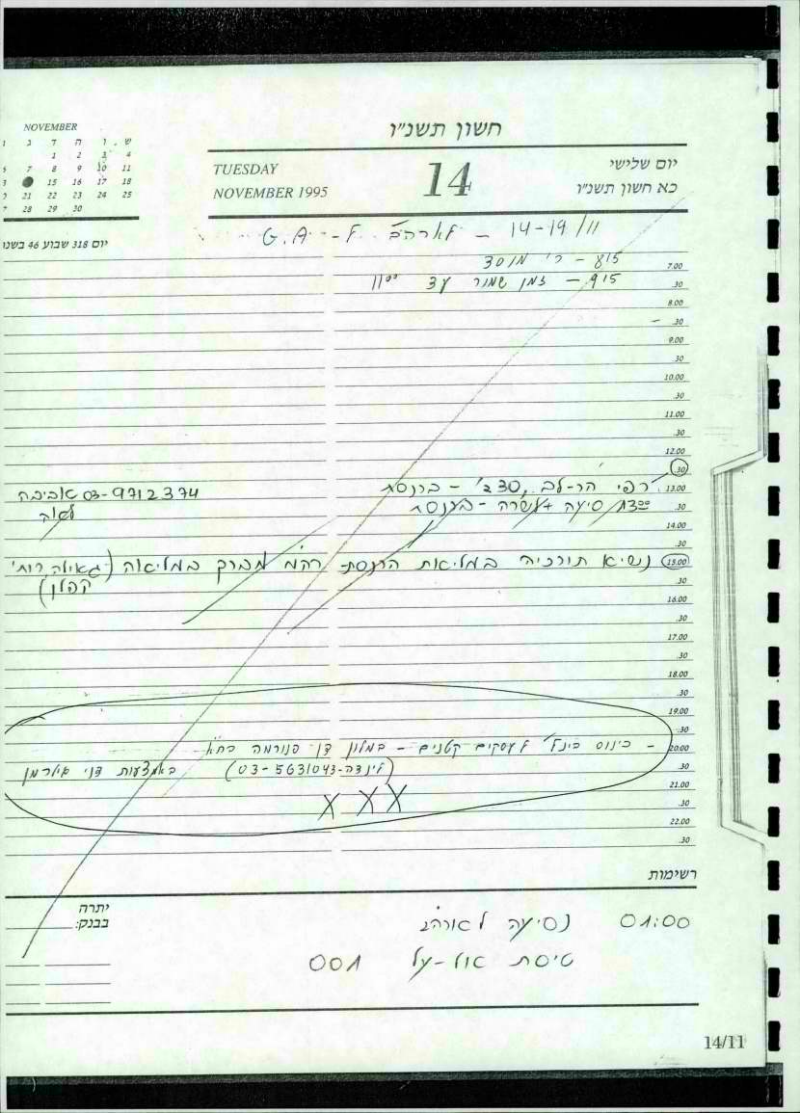 חשון תשנ"ו
NOVEMBER
ג ד ה ו ש
1 2 3 4
7 8 9 10 11
15 16 17 18
21 22 23 24 25
28 29 30
TUESDAY 14 יום שלישי
NOVEMBER 1995 כא חשון תשנ"ו
יום 318 שבוע 46
14-19/11 - לארה"ב ל- G.A
815 - ר' מוסד
7.00
915 - זמן שמור עד 11⁰⁰
.30
8.00
.30
9.00
.30
10.00
.30
11.00
.30
12.00
.30
רפי הר-לב, 230' - בכנסת
13.00
03-9712374 אביבה
סיעה - בכנסת
.30
לאה
14.00
.30
15.00 נשיא תורכיה במליאת הכנסת- רה"מ מברק במליאה (גאולה רוח'
.30
קפלן)
16.00
.30
17.00
.30
18.00
.30
19.00
.30
- כינוס בינל' לעסקים קטנים - במלון דן פנורמה בת"א
20.00
(לינדה-03-5631043) באמצעות דני
.30
21.00
X X X
.30
22.00
.30
רשימות
יתרה
בבנק:
01:00 נסיעה לארה"ב
טיסת אל-על 001
14/11